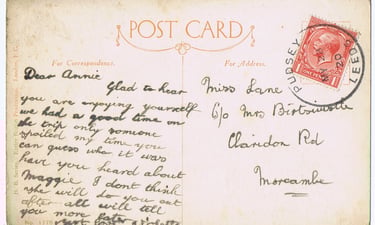 POST CARD
For Correspondence.
For Address.
Dear Annie
Glad to hear
you are enjoying yourself
we had a good time on
the trip only someone
spoiled my time you
can guess who it was
have you heard about
Maggie I dont think
she will do you out
after all will tell
you more later
Miss Lane
C/o Mrs Birtwistle
Claredon Rd
Morecambe
PUDSEY
LEEDS